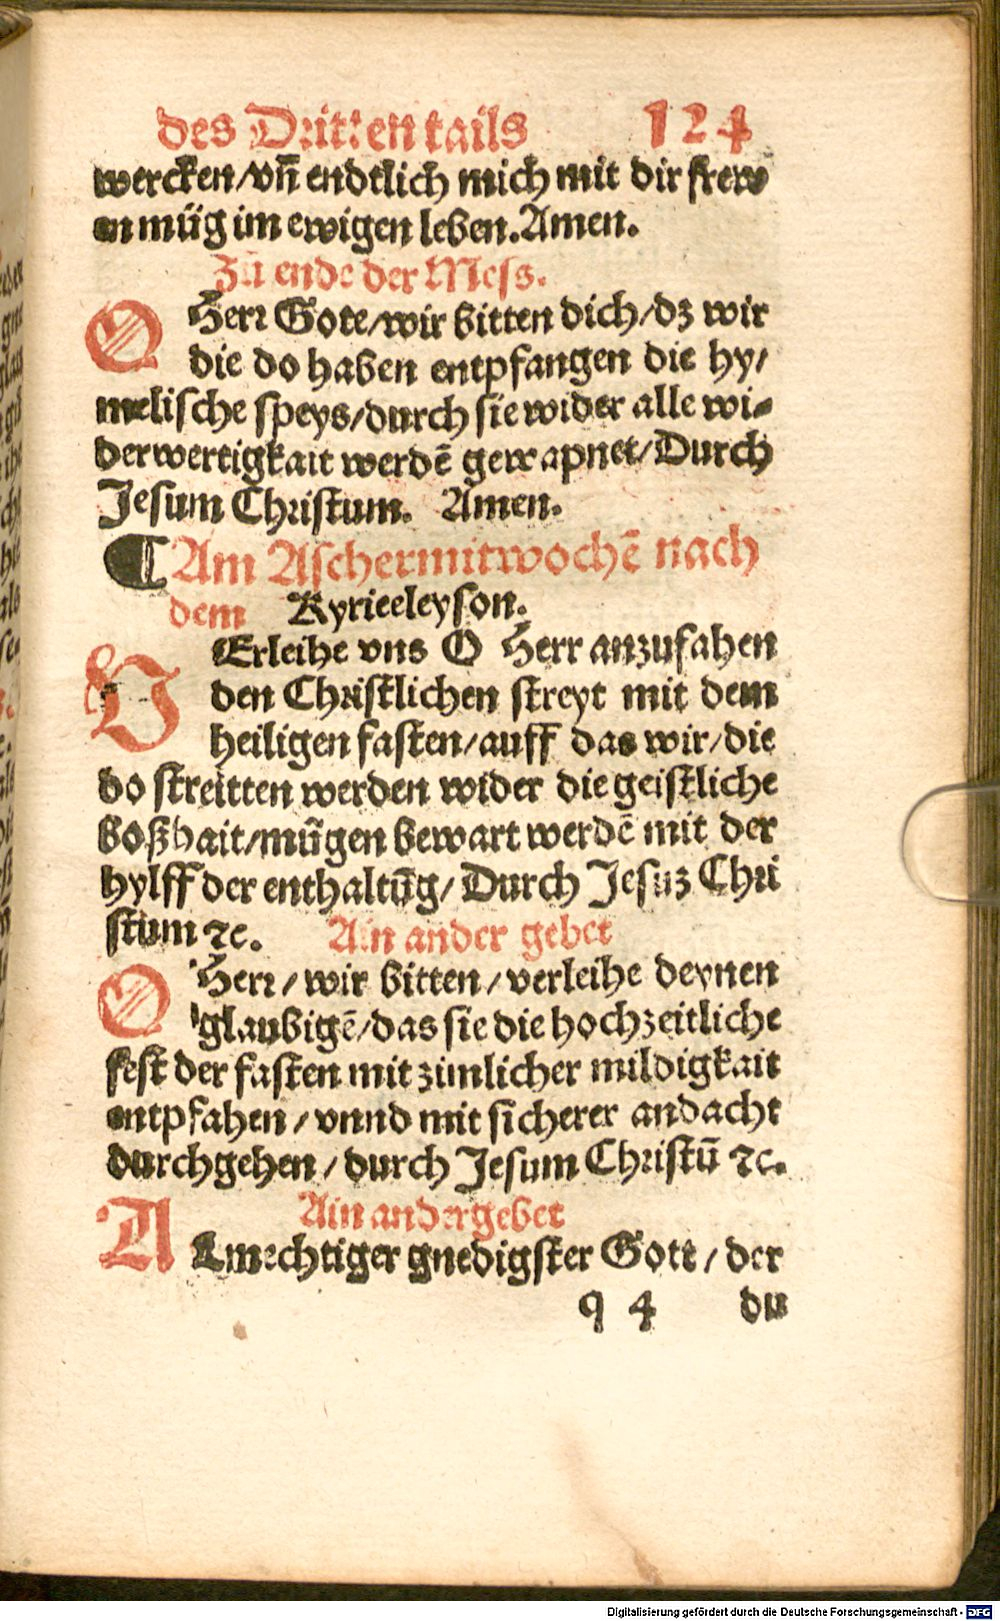 des Dritten tails 124
wercken/vñ endtlich mich mit dir frew
en müg im ewigen leben. Amen.
Zů ende der Mess.
O Herr Gote/wir bitten dich/dz wir
die do haben entpfangen die hy/
melische speys/durch sie wider alle wi-
derwertigkait werdē gewapnet/Durch
Jesum Christum. Amen.
¶ Am Aschermitwochē nach
dem Kyrieeleyson.
VErleihe vns O Herr anzufahen
den Christlichen streyt mit dem
heiligen fasten/auff das wir/die
do streitten werden wider die geistliche
boßhait/mügen bewart werdē mit der
hylff der enthaltūg/Durch Jesuz Chri
stum ⁊c. Ain ander gebet
O Herr/wir bitten/verleihe deynen
glaubigē/das sie die hochzeitliche
fest der fasten mit zimlicher mildigkait
entpfahen/vnnd mit sicherer andacht
durchgehen/durch Jesum Christū ⁊c.
Ain ander gebet
ALmechtiger gnedigster Gott/der
q 4 du
Digitalisierung gefördert durch die Deutsche Forschungsgemeinschaft - DFG